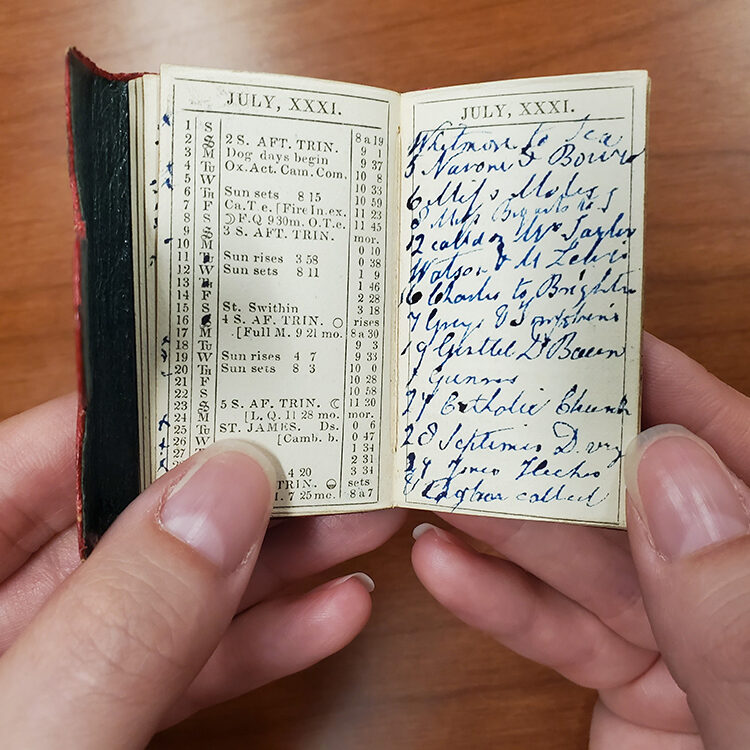 JULY, XXXI.
1 S 8 a 19
2 S 2 S. AFT. TRIN. 9 1
3 M Dog days begin 9 37
4 Tu Ox. Act. Cam. Com. 10 8
5 W 10 33
6 Th Sun sets 8 15 10 59
7 F Ca. T e. [Fire In. ex. 11 23
8 S ☽ F. Q 9 30m. O. T. e. 11 45
9 S 3 S. AFT. TRIN. mor.
10 M 0 10
11 Tu Sun rises 3 58 0 38
12 W Sun sets 8 11 1 9
13 Th 1 46
14 F 2 28
15 S St. Swithin 3 18
16 S 4 S. AF. TRIN. ○ rises
17 M [Full M. 9 21 mo. 8 a 30
18 Tu 9 3
19 W Sun rises 4 7 9 33
20 Th Sun sets 8 3 10 0
21 F 10 28
22 S 10 58
23 S 5 S. AF. TRIN. ☾ 11 30
24 M [L. Q. 11 28 mo. mor.
25 Tu ST. JAMES. Ds. 0 6
26 W [Camb. b. 0 47
27 1 34
2 31
4 20 3 34
TRIN. sets
7 25 mo. 8 a 7
JULY, XXXI.
Whitmore to Tea
5 Navone &
6 Miss Moles
8 Miss
12 called on Mrs Taylor
Watson & M Lewis
16 Charles to Brighton
Greys &
19 Dr Bacon
Gunners
27 Catholic Church
28 Septimus
29 Jones
called